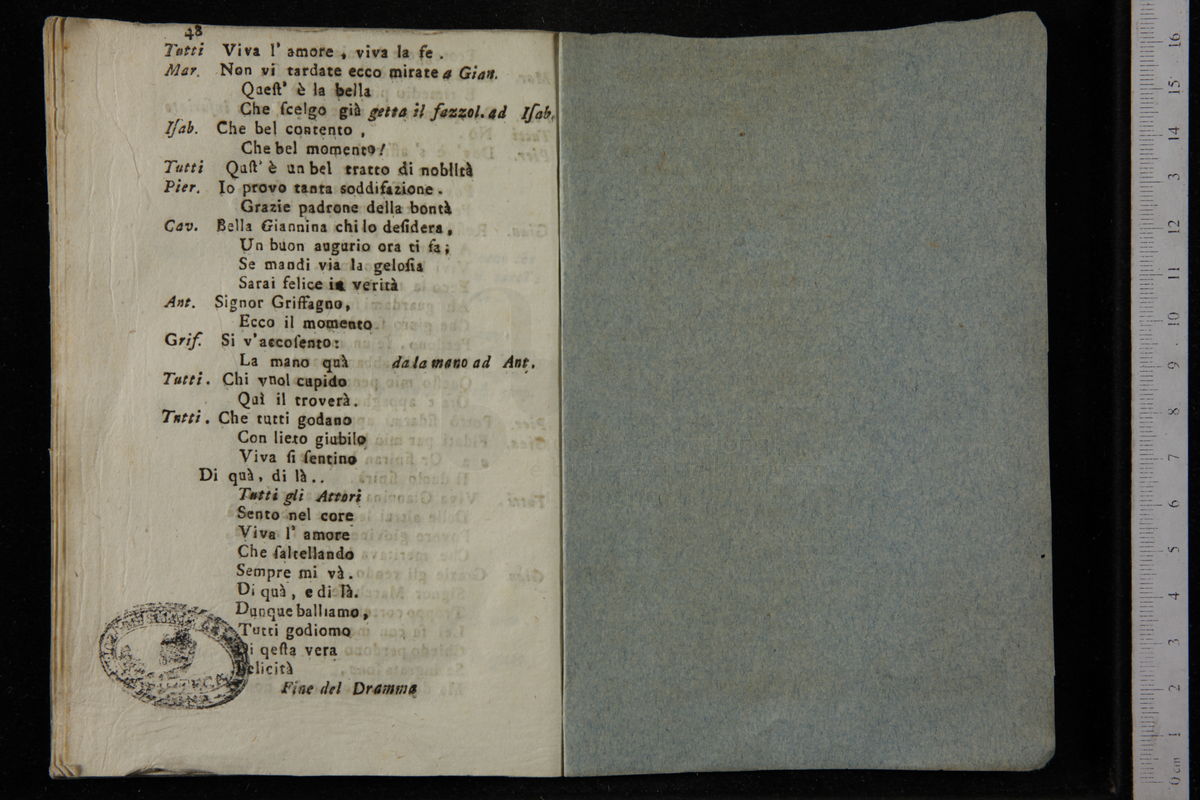 48
Tutti Viva l' amore, viva la fe.
Mar. Non vi tardate ecco mirate a Gian.
Quest' è la bella
Che ſcelgo già getta il fazzol. ad Iſab.
Iſab. Che bel contento,
Che bel momento!
Tutti Quſt' è un bel tratto di nobiltà
Pier. Io provo tanta soddiſazione.
Grazie padrone della bontà
Cav. Bella Giannina chi lo deſidera,
Un buon augurio ora ti fa;
Se mandi via la geloſia
Sarai felice in verità
Ant. Signor Griffagno,
Ecco il momento
Grif. Si v'accoſento:
La mano quà da la mano ad Ant.
Tutti. Chi vuol cupido
Quì il troverà.
Tutti. Che tutti godano
Con lieto giubilo
Viva ſi ſentino
Di quà, di là..
Tutti gli Attori
Sento nel core
Viva l' amore
Che ſaltellando
Sempre mi và.
Di quà, e di là.
Dunque balliamo,
Tutti godiomo
Di qeſta vera
Felicità
Fine del Dramma
0 cm 1 2 3 4 5 6 7 8 9 10 11 12 13 14 15 16